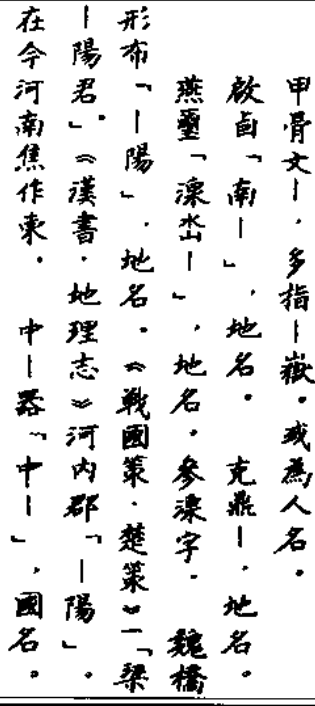 甲骨文｜，多指｜嶽。或為人名。
啟卣「南｜」，地名。　克鼎｜，地名。
燕璽「湶𡶐｜」，地名，參湶字。　魏橋
形布「｜陽」，地名。《戰國策·楚策》一「梁
｜陽君」。《漢書·地理志》河內郡「｜陽」。
在今河南焦作東。　中｜器「中｜」，國名。